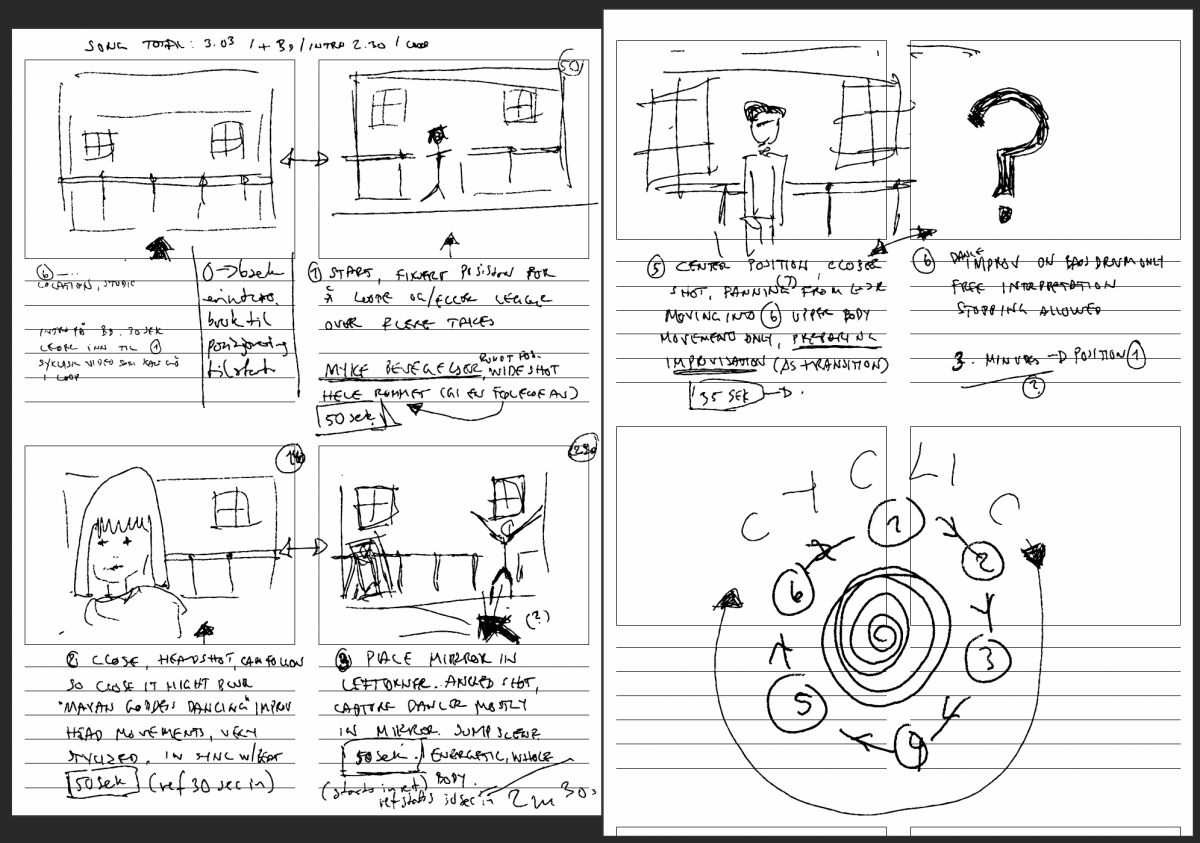 SONG TOTAL: 3.03 / + B9 / INTRO 2.30 / LOOP
50
6 -...
LOCATION, STUDIO
INTRO PÅ B9. 30 SEK
LEDER INN TIL 1
SYKLISK VIDEO SOM KAN GÅ
I LOOP
0 → 60sek
er intro.
bruk til
posisjonering
til start
1 START, FIXERT POSISJON FOR
Å LOOPE OG/ELLER LIGGE
OVER FLERE TAKES
MYKE BEVEGELSER, WIDESHOT
ROBOT POS.
HELE ROMMET (GI EN FØLELSE AV)
50 sek
2 CLOSE, HEADSHOT, CAM FOLLOW
SO CLOSE IT MIGHT BLUR
"MAYAN GODDESS DANCING" IMPROV
HEAD MOVEMENTS, VERY
STYLISED, IN SYNC W/BEAT
50 sek (ref 30 sec in)
3 PLACE MIRROR IN
LEFT CORNER. ANGLED SHOT,
CAPTURE DANCER MOSTLY
IN MIRROR. JUMP SCENE
50 sek. ENERGETIC, WHOLE
BODY.
(starts in ref)
ref starts 30 sec in 2m 30s
(?)
5 CENTER POSITION, CLOSER
SHOT, PANNING (?) FROM
MOVING INTO 6 UPPER BODY
MOVEMENT ONLY, PREPARING
IMPROVISATION (AS TRANSITION)
35 SEK
?
6 DANCE IMPROV ON BASS DRUM ONLY
FREE INTERPRETATION
STOPPING ALLOWED
3. MINUTES → POSITION 1
(?)
C Y C L I C
1
2
3
4
5
6